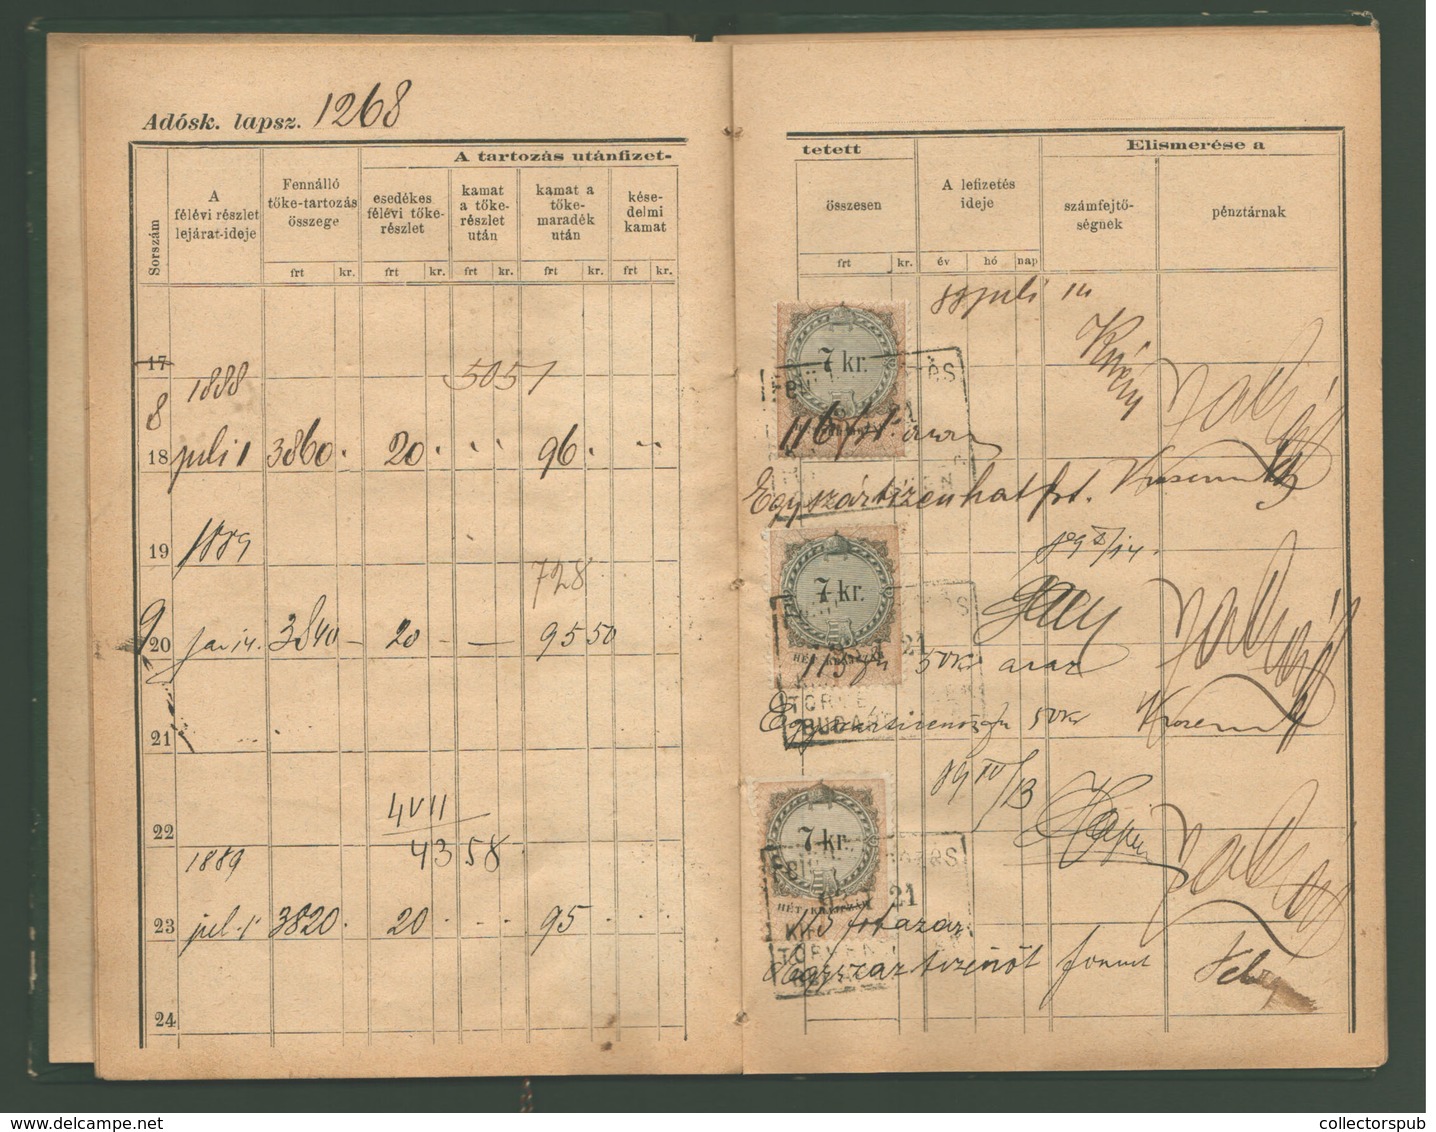 Adósk. lapsz. 1268
A tartozás utánfizet-
tetett
Elismerése a
Sorszám
A félévi részlet lejárat-ideje
Fennálló tőke-tartozás összege
esedékes félévi tőke-részlet
kamat a tőke-részlet után
kamat a tőke-maradék után
kése-delmi kamat
összesen
A lefizetés ideje
számfejtő-ségnek
pénztárnak
frt kr. frt kr. frt kr. frt kr. frt kr.
frt kr. év hó nap
89 juli 14
17
1888
5051
7 kr.
8
116 frt. azaz
18 juli 1 3860 . 20 . . . 96 . . .
Egyszáztizenhat frt.
19 1889
728
7 kr.
9
20 jan 14. 3840 — 20 — — — 95 50
21
115 50 kr azaz
50 kr
BUDAPEST
21
89 IV/13
4 VII
22
43 58
1889
7 kr.
21
HÉT KRAJCZÁR
23 jul. 1. 3820 . 20 . . . 95 . . .
115 frt azaz
Egyszáztizenöt forint
24
collectorspub